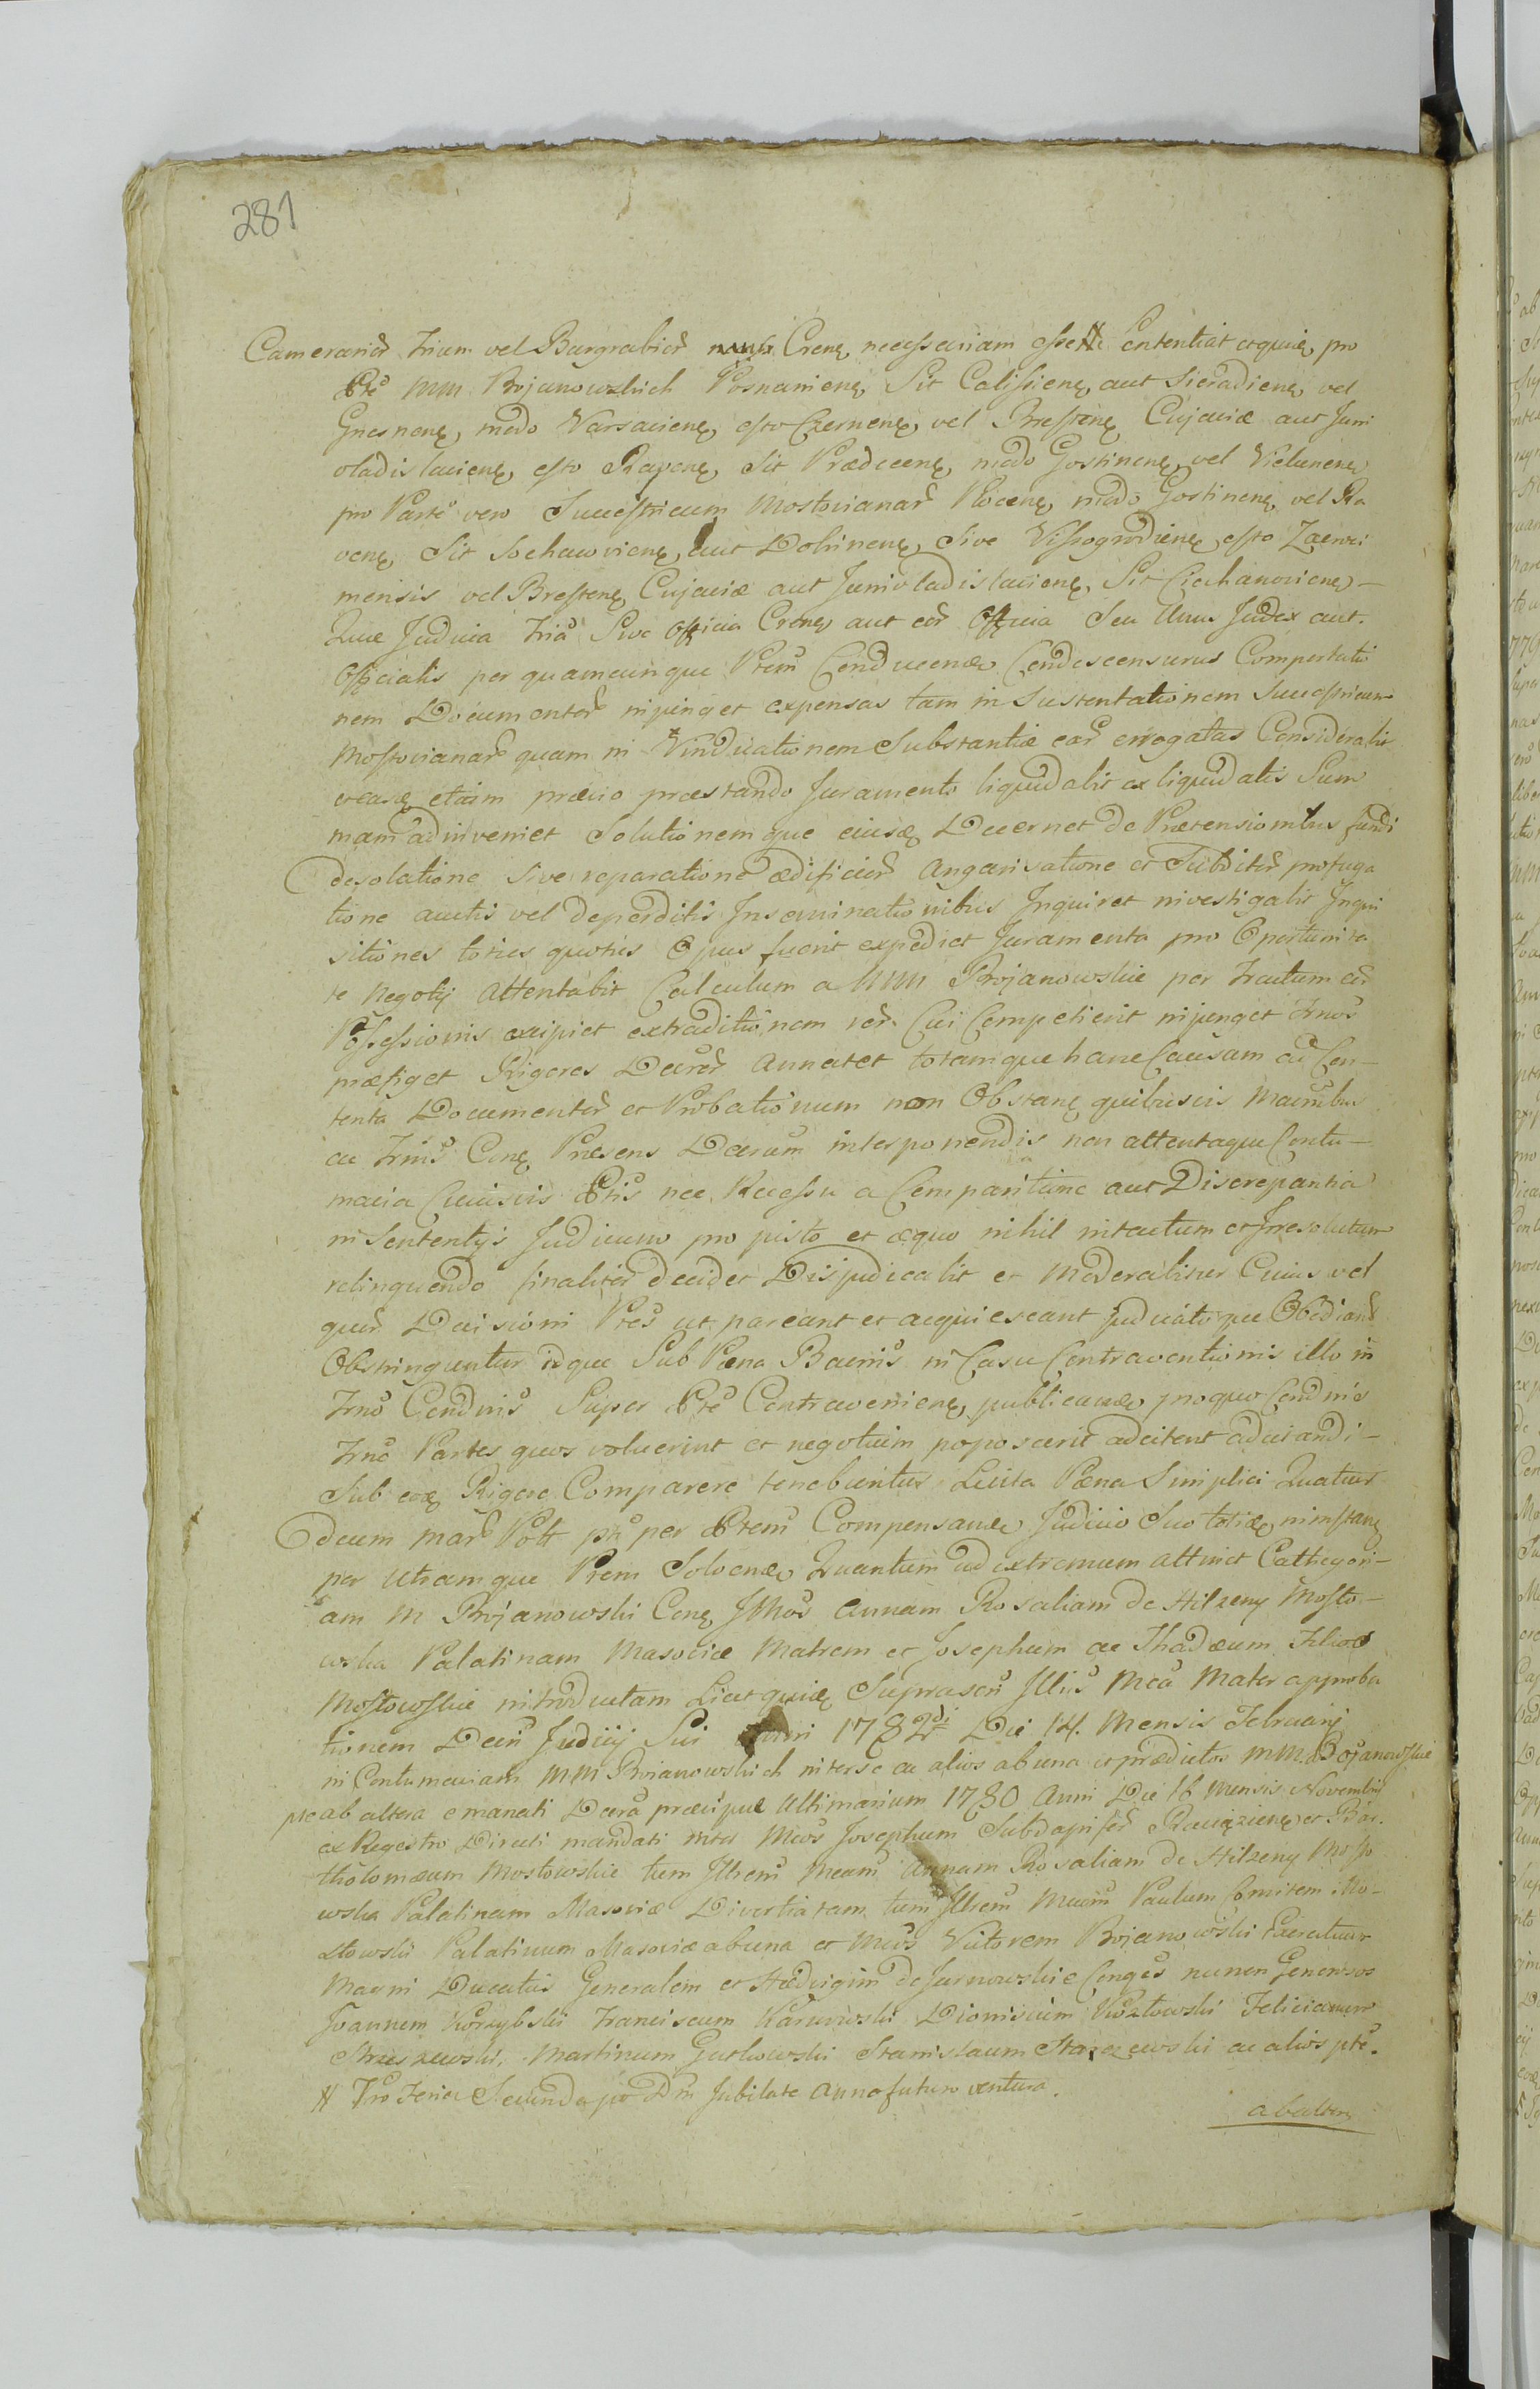 281
Camerarior Trium vel Burgrabior Crens necessariam esse # Ententiat atquiȩ pro
Pte MM Bojanowskich Posnaniens Sit Calissiens aut Sieradiens vel
Gnesnens, modo Varsaviens, esto Czernens, vel Brestens Cujaviæ aut Juni
vladislaviens, esto Sit Prædecens, modo Gostinens, vel Vielunens
pro Parte vero Succestricum Mostovianar Plocens, modo Gostinens, vel Ra
vens, Sit Sochawviens, aut Dobrinens, Sive Vissogrodiens esto Zacroci
mensis vel Brestens Cujaviæ aut Junivladislaviens, Sit Ciechanoviens —
Quæ Judicia Tria Sive Officia Crens aut eor Officia Seu Unus Judex aut.
Officialis per quamcunque Ptem Conducend Condescensurus Comportatio
nem Documentor injunget expensas tam in Sustentationem Successricum
Mostovianar quam in Vindicationem Substantiæ ear errogatas Considerabit
easq etiam prævio præstando Juramento liquidabit ex liquidatis Sum
mam adinveniet Solutionemque eiusd Decernet de Prætensionibus fundi
desolatione Sive reparatione ædificior Angarisatione et Subditor profuga
tione auctis vel deperditis Inseminationibus Inquiret investigabit Inqui
sitiones toties quoties Opus fuerit expediet Juramenta pro Oportunita
te Negotij Attentabit Calculum a MM Bojanowskie per Tractum eor
Possessionis excipiet extraditionem rer Cui Competierit injunget Trnos
præfiget Rigores Decror Annectet totamque hanc Causam ad Con-
tenta Documentor et Probationum non Obstans quibusvis
ac Trnis Cens Præsens Decrum interponendis non attentaque Contu-
macia Cuiusvis Ptis nec Recessu a Comparitione aut Discrepantia
in Sententijs Judicum pro justo et æquo nihil intactum et Irresolutum
relinquendo finaliter decidet Disjudicabit et Moderabitur Cuius vel
quor Decisioni Ptes ut pareant et acquiescant judicatoque Obediant
Obstringuntur idque Sub Pæna Bannis in Casu Contraventionis illo in
Trno Condnis Super Pte Contraveniens, publicand proquo Condnis
Trno Partes quos voluerint et negotium poposcerit adcitent adcitandi-
Sub eod Rigore Comparere tenebuntur Lucita Pæna Simplici Quatuor
decem mar Polt pti per Ptem Compensand Judicio Suo totid, ninstans
per Utramque Ptem Solvend Quantum ad extremum attinet Cathegori-
am M Bojanowski Cens Illthos Annam Rosaliam de Hilzeny Mosto-
wska Palatinam Masoviæ Matrem et Josephum ac Thadæum Filios
Mostowskie introductam Licet quid Suprascri Illis Mca Mater approba
tionem Decri Judicij Sui Anni 1782di Die 14. Mensis Februarij
in Contumaciam MM Bojanowskich inter se ac alios ab una et prædictos MM. Bojanowskie
pte ab altera emanati Decra præcipue Ultimarium 1780 Anni Die 16 Mensis Novembris
ex Regestro Directi mandati inter Mcos Josephum Subdapifer Raciążiens et Bar.
tholomæum Mostowskie tum Illrem Mcam Annam Rosaliam de Hilzeny Mosto
wska Palatinam Masoviæ Divortiatam tum Illrem Mcum Paulum Comitem Mo-
stowski Palatinum Masoviæ ab una et Mcos Victorem Bojanowski Exercituum
Magni Ducatus Generalem et Hedvigim de Jurnowskie Conges necnon Generosos
Joannem Korzybski Franciscum Karnowski Dionisium Kozłowski Felicianum
Strzeszewski, Martinum Gutkowski Stanislaum Starczewski ac alios pte.
# Pro Feria Secunda po Dm Jubilate Anno futuro ventura.
ab altera